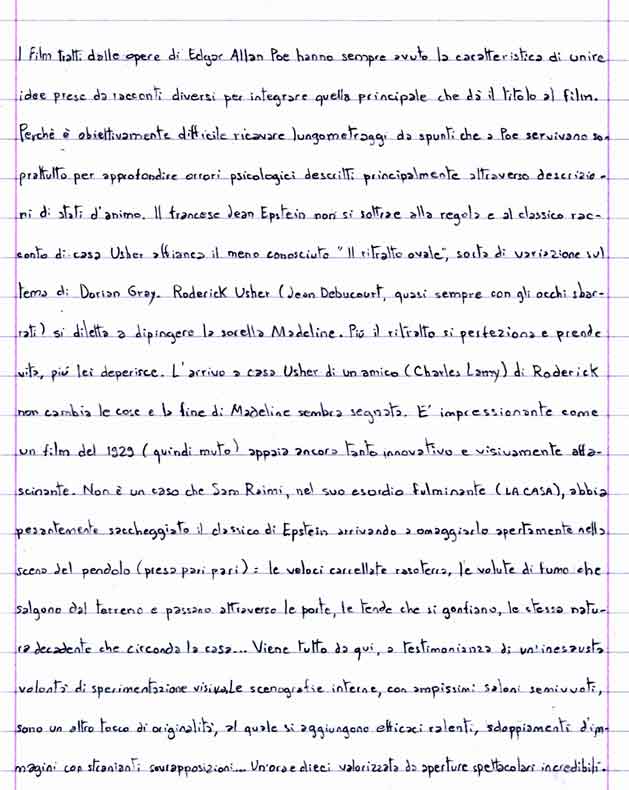 I film tratti dalle opere di Edgar Allan Poe hanno sempre avuto la caratteristica di unire
idee prese da racconti diversi per integrare quella principale che dà il titolo al film.
Perchè è obiettivamente difficile ricavare lungometraggi da spunti che a Poe servivano so-
prattutto per approfondire orrori psicologici descritti principalmente attraverso descrizio-
ni di stati d'animo. Il francese Jean Epstein non si sottrae alla regola e al classico rac-
conto di casa Usher affianca il meno conosciuto "Il ritratto ovale", sorta di variazione sul
tema di Dorian Gray. Roderick Usher (Jean Debucourt, quasi sempre con gli occhi sbar-
rati) si diletta a dipingere la sorella Madeline. Più il ritratto si perfeziona e prende
vita, più lei deperisce. L'arrivo a casa Usher di un amico (Charles Lamy) di Roderick
non cambia le cose e la fine di Madeline sembra segnata. E' impressionante come
un film del 1929 (quindi muto) appaia ancora tanto innovativo e visivamente affa-
scinante. Non è un caso che Sam Raimi, nel suo esordio fulminante (LA CASA), abbia
pesantemente saccheggiato il classico di Epstein arrivando a omaggiarlo apertamente nella
scena del pendolo (presa pari pari): le veloci carrellate rasoterra, le volute di fumo che
salgono dal terreno e passano attraverso le porte, le tende che si gonfiano, la stessa natu-
ra decadente che circonda la casa... Viene tutto da qui, a testimonianza di un'inesausta
volontà di sperimentazione visivale scenografie interne, con ampissimi saloni semivuoti,
sono un altro tocco di originalità, al quale si aggiungono efficaci ralenti, sdoppiamenti d'im-
magini con stranianti sovrapposizioni... Un'ora e dieci valorizzata da aperture spettacolari incredibili.